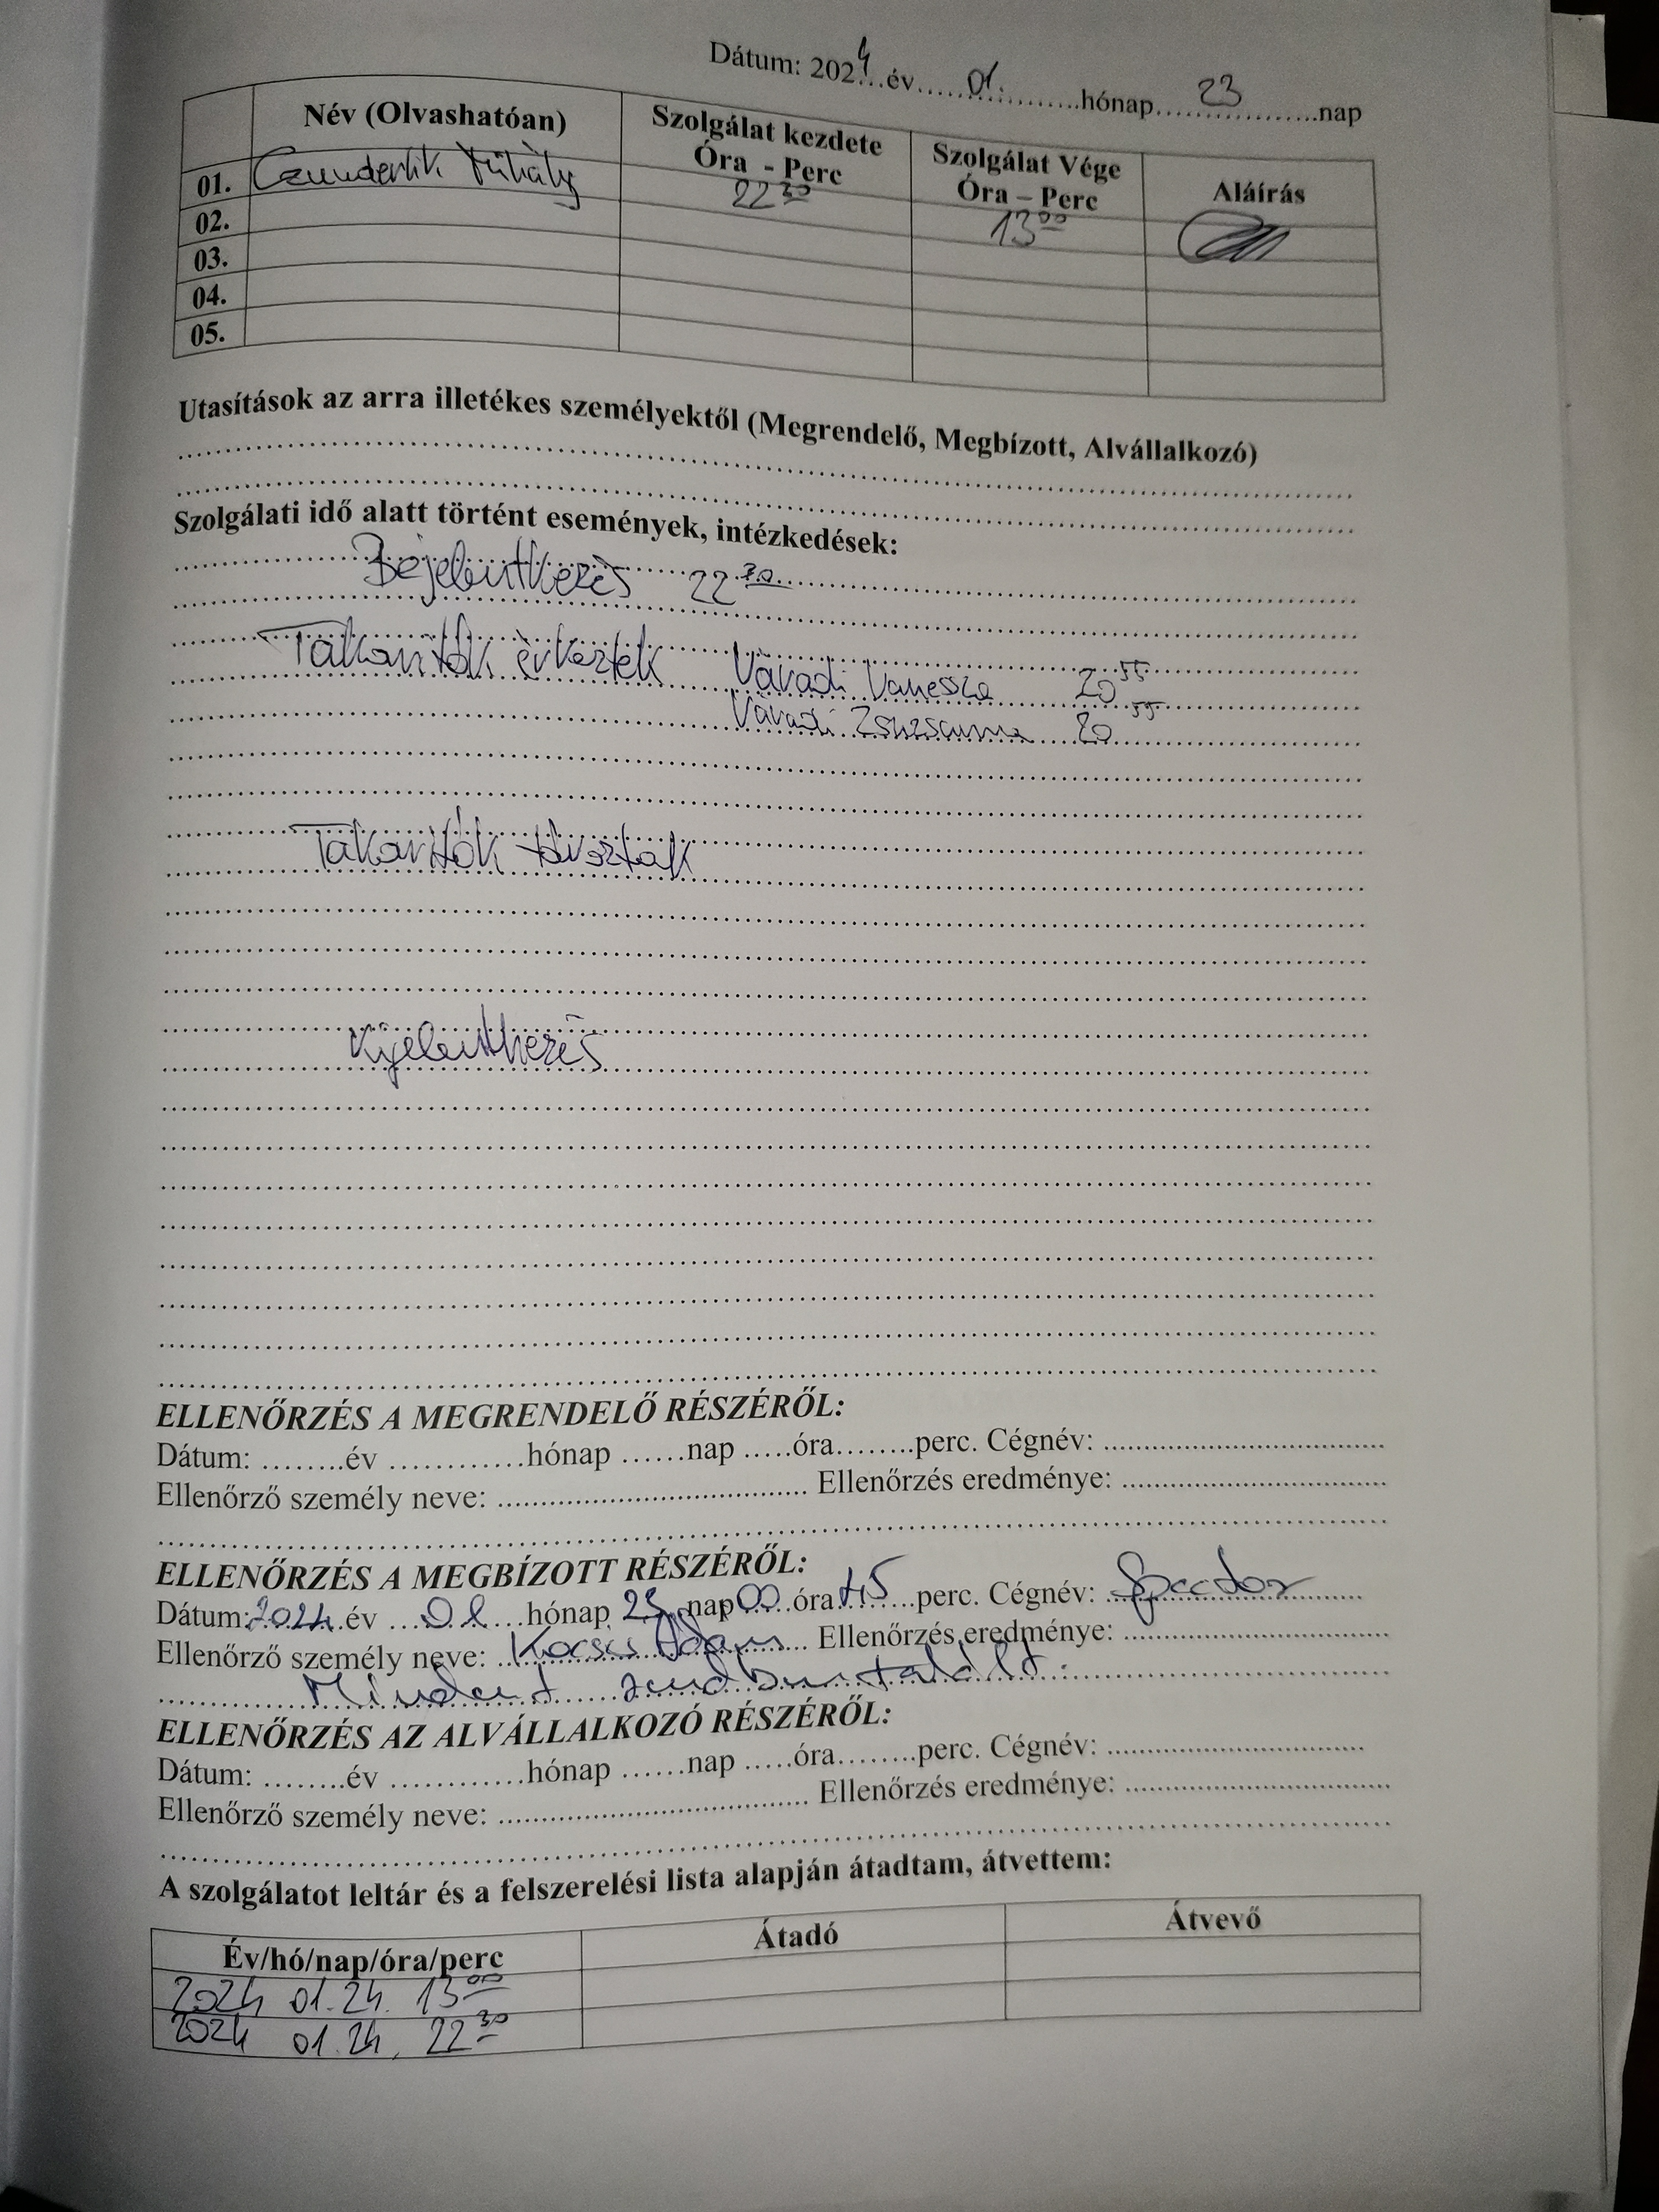 Dátum: 2024 év 01. hónap 23 nap
Név (Olvashatóan) Szolgálat kezdete Óra - Perc Szolgálat Vége Óra – Perc Aláírás
01. Czunderlik Mihály 22 30 13 00
02.
03.
04.
05.
Utasítások az arra illetékes személyektől (Megrendelő, Megbízott, Alvállalkozó)
Szolgálati idő alatt történt események, intézkedések:
Bejelentkezés 22 30
Takarítók érkeztek Váradi Vanessza 20 55
Váradi Zsuzsanna 20 55
Takarítók távoztak
Kijelentkezés
ELLENŐRZÉS A MEGRENDELŐ RÉSZÉRŐL:
Dátum: ........év ............hónap ......nap .....óra........perc. Cégnév: ....................
Ellenőrző személy neve: .................... Ellenőrzés eredménye: ....................
ELLENŐRZÉS A MEGBÍZOTT RÉSZÉRŐL:
Dátum: 2024 év 01 hónap 23 nap 00 óra 45 perc. Cégnév:
Ellenőrző személy neve: Kocsis Ádám Ellenőrzés eredménye:
Mindent rendben talált.
ELLENŐRZÉS AZ ALVÁLLALKOZÓ RÉSZÉRŐL:
Dátum: ........év ............hónap ......nap .....óra........perc. Cégnév: ....................
Ellenőrző személy neve: .................... Ellenőrzés eredménye: ....................
A szolgálatot leltár és a felszerelési lista alapján átadtam, átvettem:
Év/hó/nap/óra/perc Átadó Átvevő
2024 01.24. 13 00
2024 01.24. 22 30